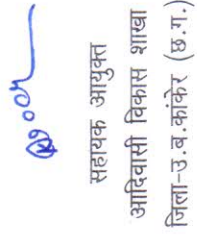 सहायक आयुक्त
आदिवासी विकास शाखा
जिला-उ.ब.कांकेर (छ.ग.)